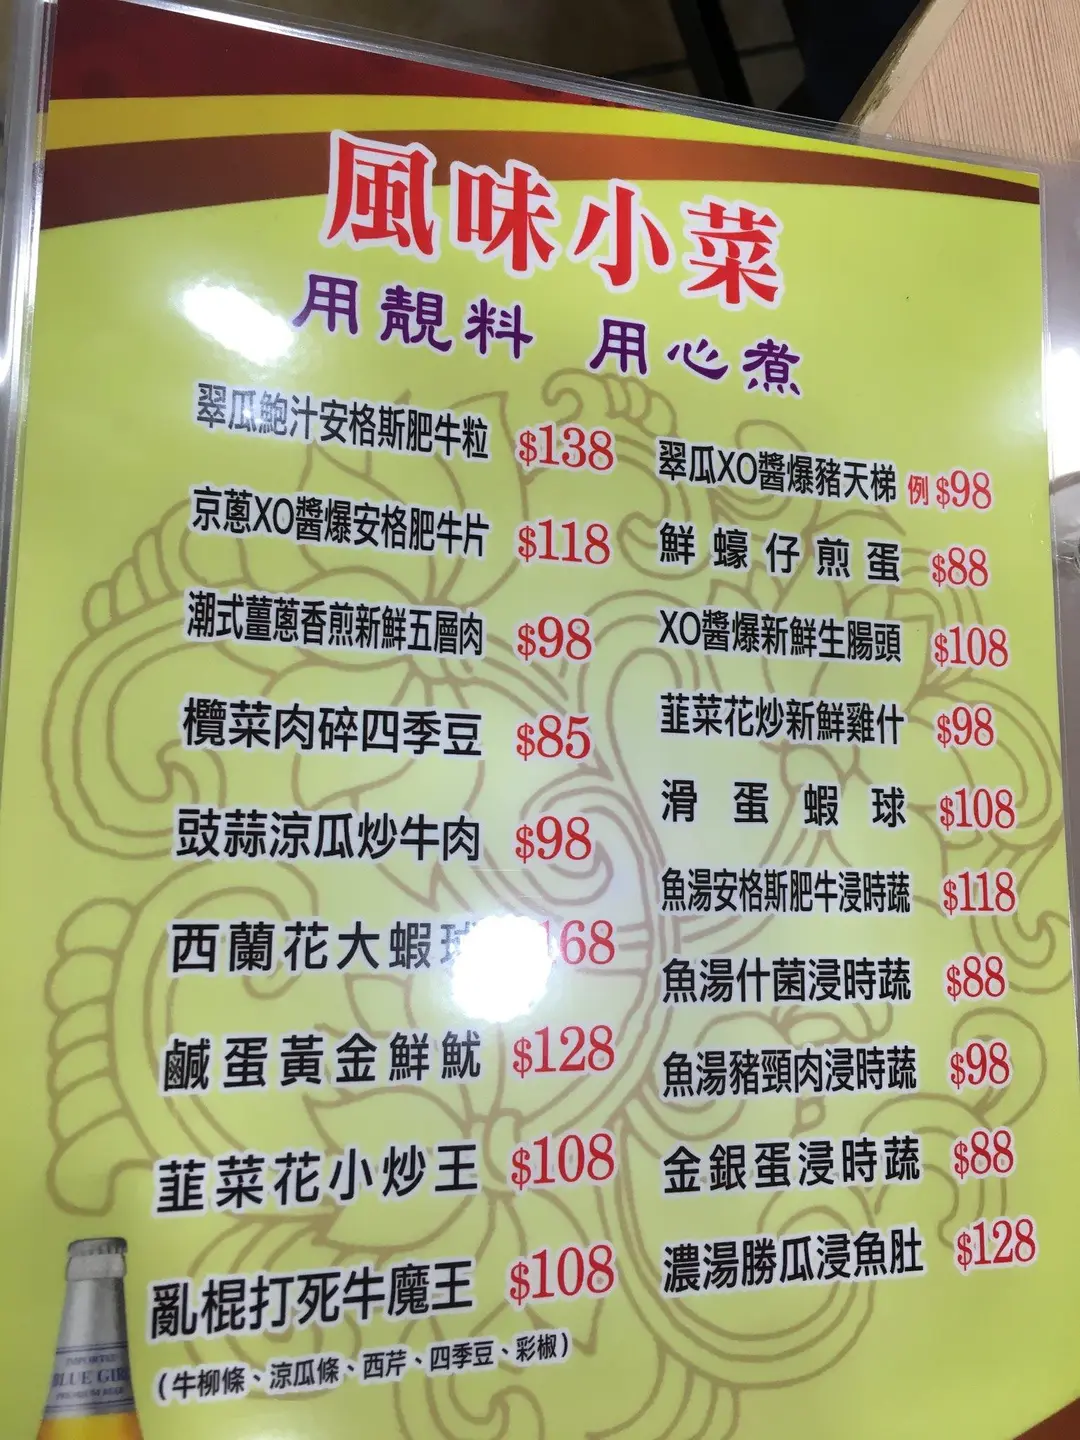 風味小菜
用靚料 用心煮
翠瓜鮑汁安格斯肥牛粒 $138
京蔥XO醬爆安格肥牛片 $118
潮式薑蔥香煎新鮮五層肉 $98
欖菜肉碎四季豆 $85
豉蒜涼瓜炒牛肉 $98
西蘭花大蝦球 $168
鹹蛋黃金鮮魷 $128
韮菜花小炒王 $108
亂棍打死牛魔王 $108
(牛柳條、涼瓜條、西芹、四季豆、彩椒)
翠瓜XO醬爆豬天梯 例 $98
鮮蠔仔煎蛋 $88
XO醬爆新鮮生腸頭 $108
韮菜花炒新鮮雞什 $98
滑蛋蝦球 $108
魚湯安格斯肥牛浸時蔬 $118
魚湯什菌浸時蔬 $88
魚湯豬頸肉浸時蔬 $98
金銀蛋浸時蔬 $88
濃湯勝瓜浸魚肚 $128
IMPORTED
BLUE GIRL
PREMIUM BEER